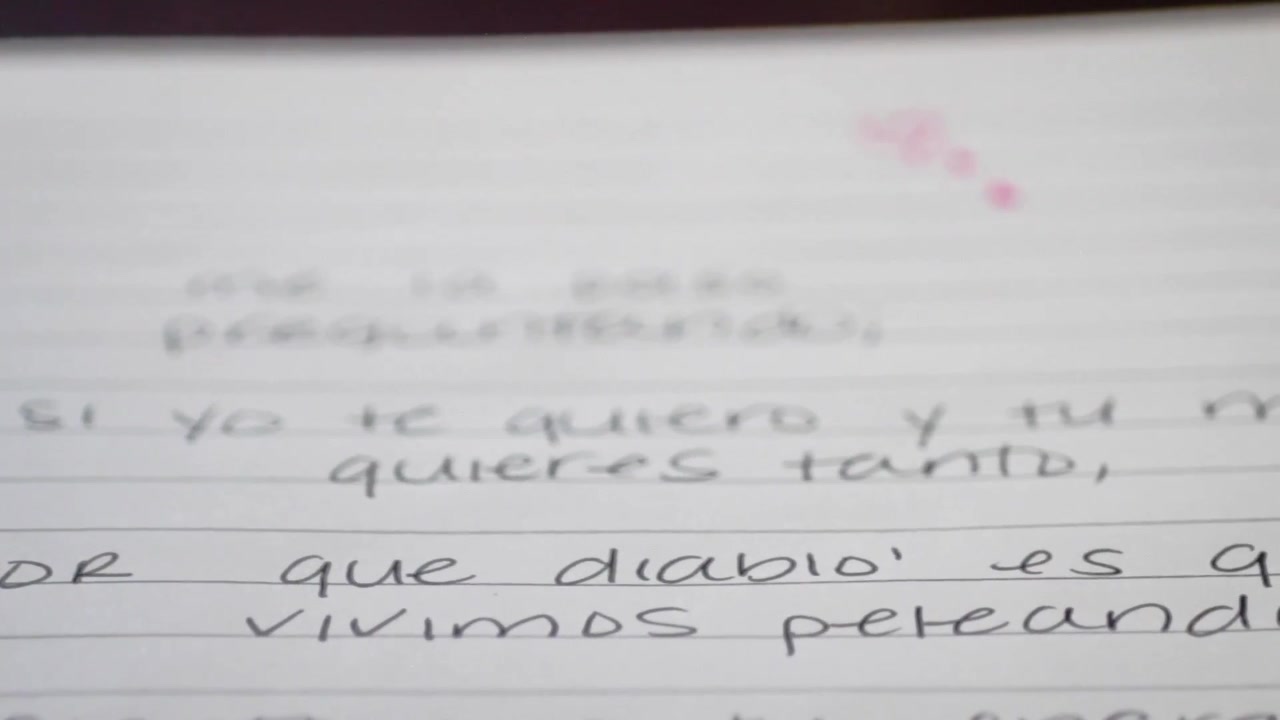 preguntando,
si yo te quiero y tu m
quieres tanto,
OR que diablo' es q
vivimos peleand